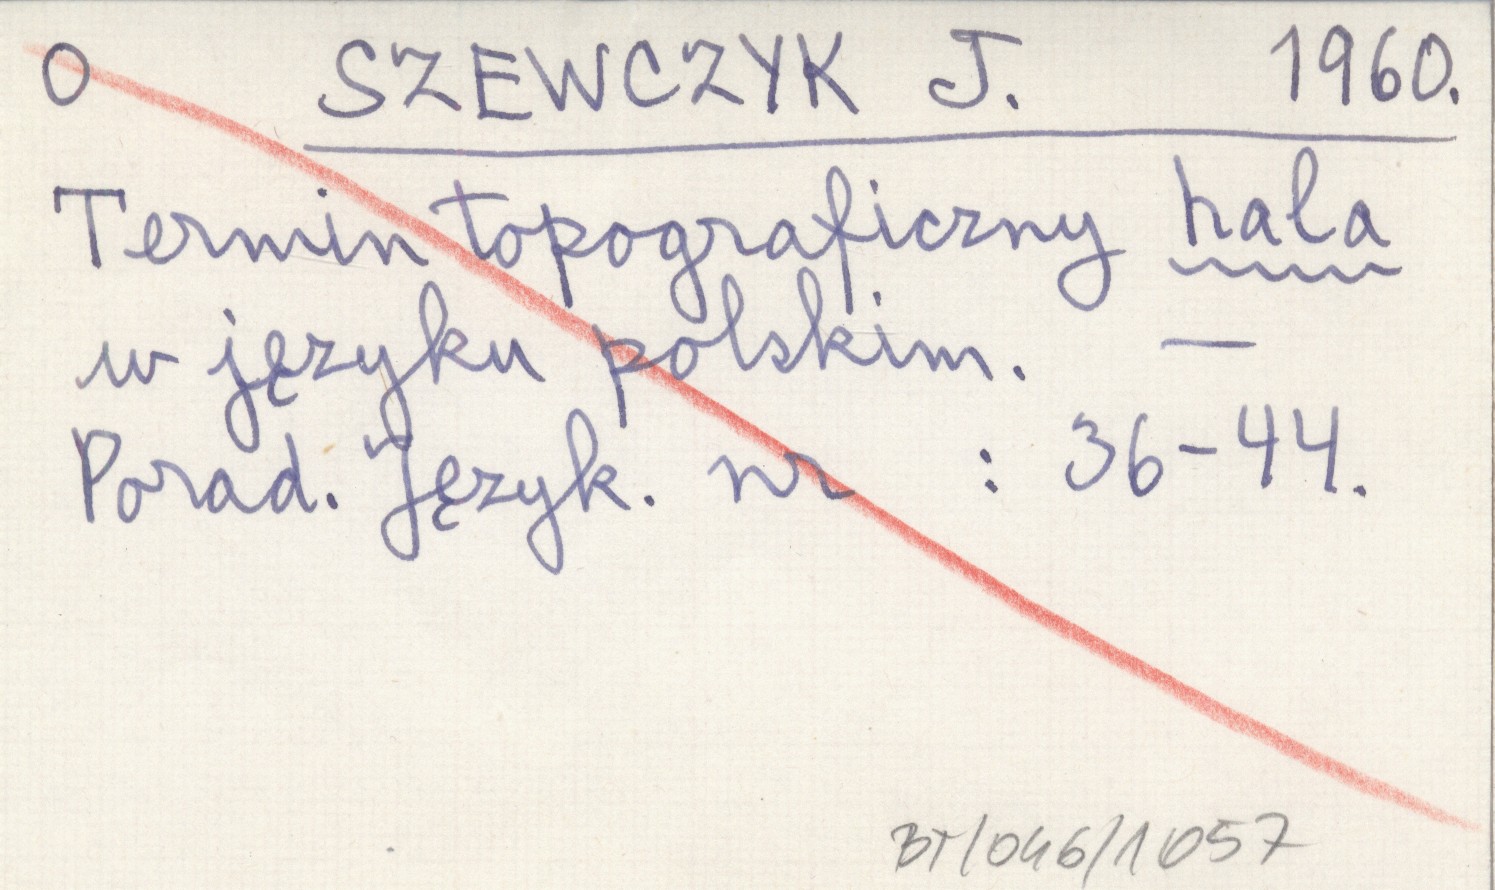 O SZEWCZYK J. 1960.
Termin topograficzny hala
w języku polskim. —
Porad. Język. nr : 36-44.
BT/046/1057